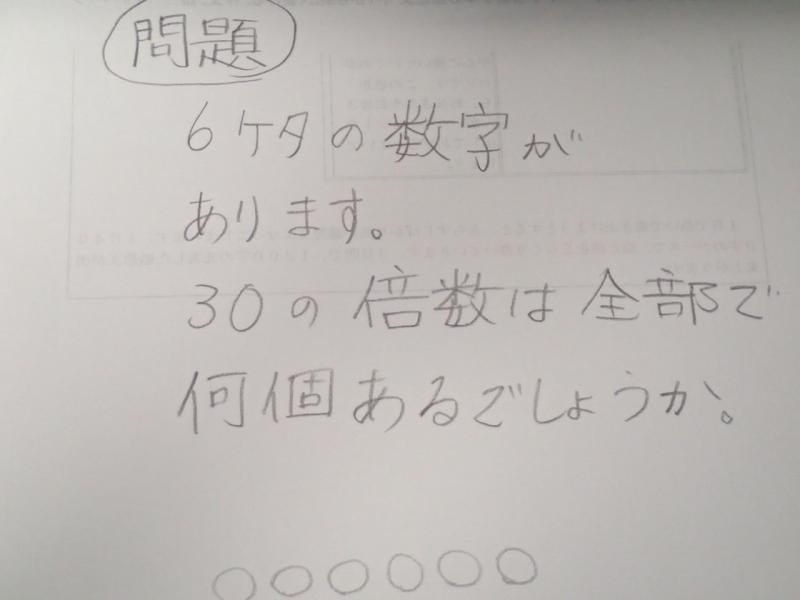 問題
6ケタの数字が
あります。
30の倍数は全部で
何個あるでしょうか。
○○○○○○